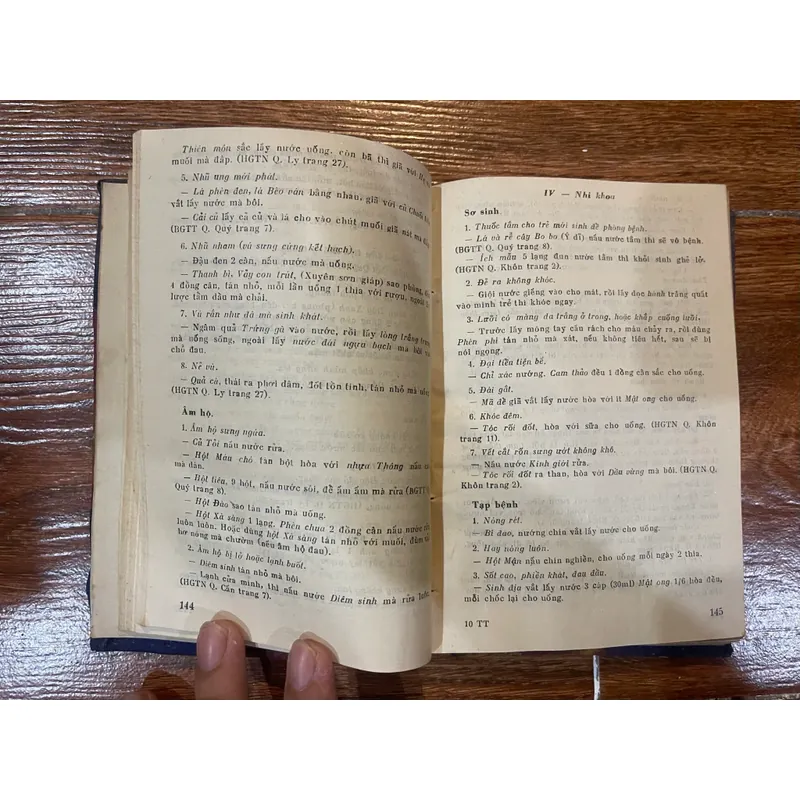 Thiên môn sắc lấy nước uống, còn bã thì giã với
muối mà đắp. (HGTN Q. Ly trang 27).
5. Nhũ ung mới phát.
— Lá phèn đen, lá Bèo ván bằng nhau, giã với củ Chuối
vắt lấy nước mà bôi.
— Cải củ lấy cả củ và lá cho vào chút muối giã nát mà
(BGTT Q. Quý trang 7).
6. Nhũ nham (vú sưng cứng kết hạch).
— Đậu đen 2 cân, nấu nước mà uống.
— Thanh bì, Vảy con trút, (Xuyên sơn giáp) sao phồng,
4 đồng cân, tán nhỏ, mỗi lần uống 1 thìa với rượu, ngoài
lược tẩm dầu mà chải.
7. Vú rắn như đá mà sinh khát.
— Ngâm quả Trứng gà vào nước, rồi lấy lòng trắng
mà uống sống, ngoài lấy nước đái ngựa bạch mà bôi
chỗ đau.
8. Nẻ vú.
— Quả cà, thái ra phơi dâm, đốt tồn tính, tán nhỏ mà
(HGTN Q. Ly trang 27).
Âm hộ.
1. Âm hộ sưng ngứa.
— Củ Tỏi nấu nước rửa.
— Hột Máu chó tán bột hòa với nhựa Thông nấu
mà dán.
— Hột tiêu, 9 hột, nấu nước sôi, để âm ấm mà rửa (BGTT
Quý trang 8).
— Hột Đào sao tán nhỏ mà uống.
— Hột Xà sàng 1 lạng, Phèn chua 2 đồng cân nấu nước
luôn luôn. Hoặc dùng hột Xà sàng tán nhỏ với muối,
hơ nóng mà chườm (nếu âm hộ đau).
2. Âm hộ bị lở hoặc lạnh buốt.
— Diêm sinh tán nhỏ mà bôi.
— Lạnh cửa mình, thì nấu nước Diêm sinh mà rửa luôn.
(HGTN Q. Cấn trang 7).
144
IV — Nhi khoa
Sơ sinh
1. Thuốc tắm cho trẻ mới sinh để phòng bệnh.
— Lá và rễ cây Bo bo (Ý dĩ) nấu nước tắm thì sẽ vô bệnh.
(BGTT Q. Quý trang 8).
— Ích mẫu 5 lạng đun nước tắm thì khỏi sinh ghẻ lở.
(HGTN Q. Khôn trang 2).
2. Đẻ ra không khóc.
— Giội nước giếng vào cho mát, rồi lấy dọc hành trắng quất
vào mình trẻ thì khóc ngay.
3. Lưỡi có màng da trắng ở trong, hoặc khắp cuống lưỡi.
— Trước lấy móng tay cấu rách cho máu chảy ra, rồi dùng
Phèn phi tán nhỏ mà xát, nếu không tiêu hết, sau sẽ bị
nói ngọng.
4. Đại tiểu tiện bế.
— Chỉ xác nướng, Cam thảo đều 1 đồng cân sắc cho uống.
5. Đái gắt.
— Mã đề giã vắt lấy nước hòa với ít Mật ong cho uống.
6. Khóc đêm.
— Tóc rối đốt, hòa với sữa cho uống. (HGTN Q. Khôn
trang 11).
7. Vết cắt rốn sưng ướt không khô.
— Nấu nước Kinh giới rửa.
— Tóc rối đốt ra than, hòa với Dầu vừng mà bôi. (HGTN Q.
Khôn trang 2).
Tạp bệnh
1. Nóng rét.
— Bí đao, nướng chín vắt lấy nước cho uống.
2. Hay nóng luôn.
— Hột Mận nấu chín nghiền, cho uống mỗi ngày 2 thìa.
3. Sốt cao, phiền khát, đau đầu.
— Sinh địa vắt lấy nước 3 cáp (30ml) Mật ong 1/6 hòa đều,
mỗi chốc lại cho uống.
10 TT
145